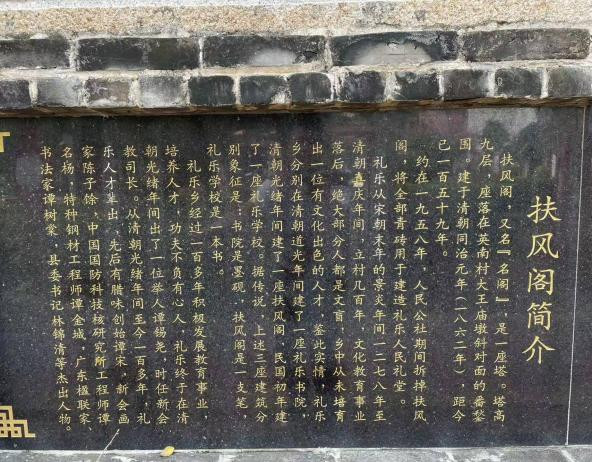 扶风阁简介
扶风阁，又名『名阁』，是一座塔。塔高
九层，座落在英南村大王庙墩斜对面的番塾
围。建于清朝同治元年（一八六二年），距今
已一百五十九年。
约在一九五八年，人民公社期间拆掉扶风
阁，将全部青砖用于建造礼乐人民礼堂。
礼乐从宋朝末年的景炎年间一二七八年至
清朝嘉庆年间，立村几百年，文化教育事业
落后，绝大部分人都是文盲，乡中从未培育
出一位有文化出色的人才。鉴此实情，礼乐
乡分别在清朝道光年间建了一座礼乐书院，
清朝光绪年间建了一座扶风阁，民国初年建
了一座礼乐学校。据传说，上述三座建筑分
别象征是：书院是墨砚，扶风阁是一支笔，
礼乐学校是一本书。
礼乐乡经过一百多年积极发展教育事业，
培养人才，功夫不负有心人，礼乐终于在清
朝光绪年间出了一位举人谭锡尧，时任新会
教司长。从清朝光绪年间至今一百多年，礼
乐人才辈出，先后有腊味创始谭宋，新会画
家陈子馀，中国国防科技核研究所工程师谭
名杨，特种钢材工程师谭金城，广东楹联家、
书法家谭树棠，县委书记林锦清等杰出人物。